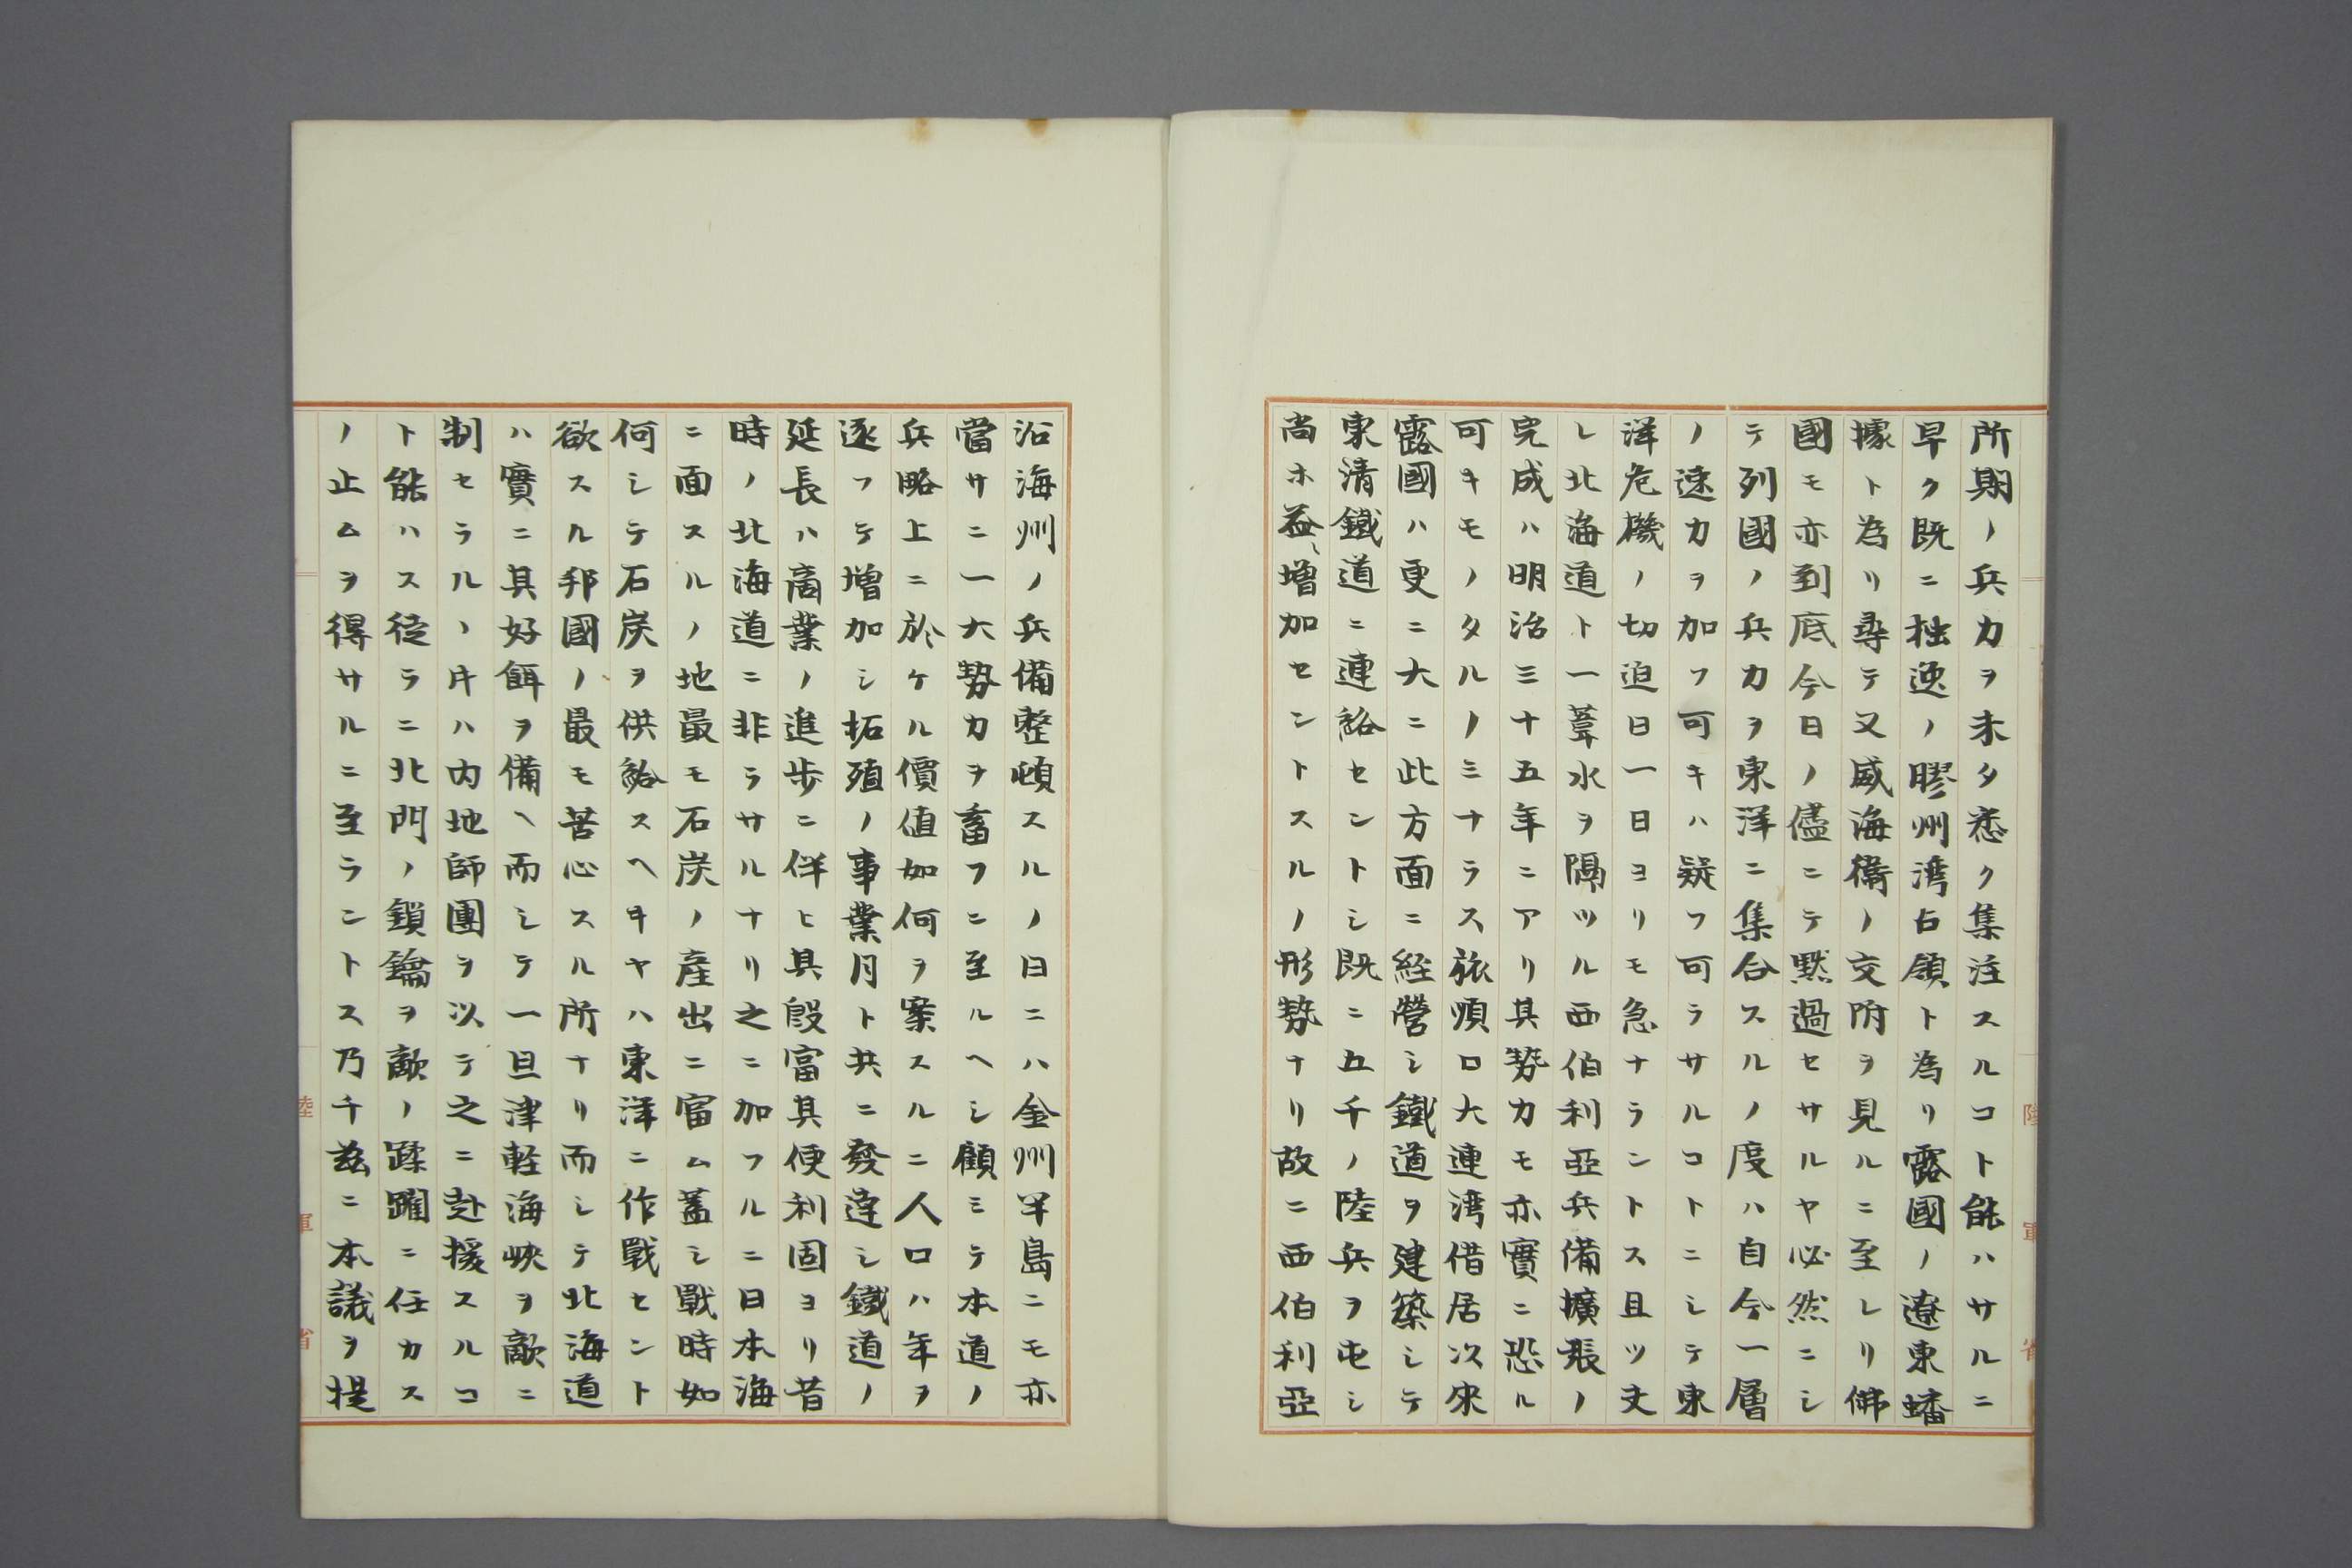 所期ノ兵力ヲ未タ悉ク集注スルコト能ハサルニ
早ク既ニ拙逸ノ膠州湾占領ト為リ露國ノ遼東蟠
據ト為リ尋テ又威海衛ノ交附ヲ見ルニ至レリ佛
國モ亦到底今日ノ儘ニテ黙過セサルヤ必然ニシ
テ列國ノ兵力ヲ東洋ニ集合スルノ度ハ自今一層
ノ速力ヲ加フ可キハ疑フ可ラサルコトニシテ東
洋危機ノ切迫日一日ヨリモ急ナラントス且ツ夫
レ北海道ト一葦水ヲ隔ツル西伯利亞兵備擴張ノ
完成ハ明治三十五年ニアリ其勢力モ亦實ニ恐ル
可キモノタルノミナラス旅順口大連湾借居以來
露國ハ更ニ大ニ此方面ニ経營シ鐵道ヲ建築シテ
東清鐵道ニ連絡セントシ既ニ五千ノ陸兵ヲ屯シ
尚ホ益々増加セントスルノ形勢ナリ故ニ西伯利亞
沿海州ノ兵備整頓スルノ日ニハ金州半島ニモ亦
當サニ一大勢力ヲ畜フニ至ルヘシ顧ミテ本道ノ
兵略上ニ於ケル價値如何ヲ案スルニ人口ハ年ヲ
逐フテ増加シ拓殖ノ事業月ト共ニ發達シ鐵道ノ
延長ハ商業ノ進歩ニ伴ヒ其殷富其便利固ヨリ昔
時ノ北海道ニ非ラサルナリ之ニ加フルニ日本海
ニ面スルノ地最モ石炭ノ産出ニ富ム蓋シ戰時如
何シテ石炭ヲ供給スヘキヤハ東洋ニ作戰セント
欲スル邦國ノ最モ苦心スル所ナリ而シテ北海道
ハ實ニ其好餌ヲ備ヘ而シテ一旦津軽海峽ヲ敵ニ
制セラルヽ片ハ内地師團ヲ以テ之ニ赴援スルコ
ト能ハス徒ラニ北門ノ鎖鑰ヲ敵ノ蹂躙ニ任カス
ノ止ムヲ得サルニ至ラントス乃千玆ニ本議ヲ提
陸軍省
陸軍省